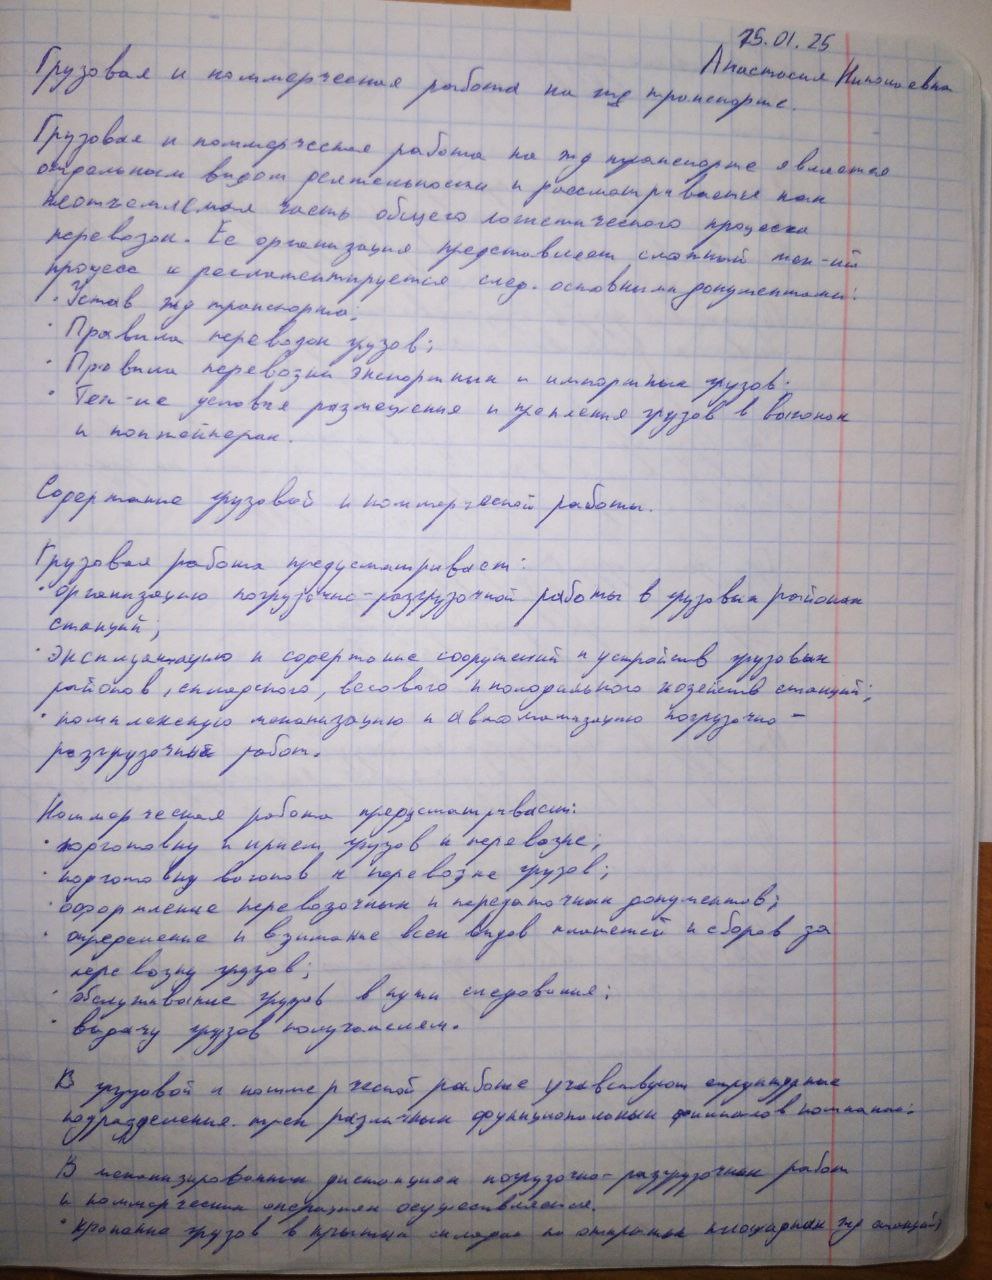 15.01.25
Анастасия Николаевна
Грузовая и коммерческая работа на жд транспорте.
Грузовая и коммерческая работа на жд транспорте является
отдельным видом деятельности и рассматривается как
неотъемлемая часть общего логистического процесса
перевозок. Ее организация представляет сложный тех-ий
процесс и регламентируется след. основными документами:
· Устав жд транспорта;
· Правила перевозок грузов;
· Правила перевозки экспортных и импортных грузов.
· Тех-ие условия размещения и крепления грузов в вагонах
и контейнерах.
Содержание грузовой и коммерческой работы.
Грузовая работа предусматривает:
· организацию погрузочно-разгрузочной работы в грузовых районах
станций;
· эксплуатацию и содержание сооружений и устройств грузовых
районов, складского, весового и холодильного хозяйств станций;
· комплексную механизацию и автоматизацию погрузочно-
разгрузочных работ.
Коммерческая работа предусматривает:
· подготовку и прием грузов к перевозке;
· подготовку вагонов к перевозке грузов;
· оформление перевозочных и передаточных документов;
· определение и взимание всех видов платежей и сборов за
перевозку грузов;
· обслуживание грузов в пути следования;
· выдачу грузов получателям.
В грузовой и коммерческой работе участвуют структурные
подразделения трех различных функциональных филиалов компании:
В механизированных дистанциях погрузочно-разгрузочных работ
и коммерческих операциях осуществляется.
· хранение грузов в крытых складах на открытых площадках жд станций;